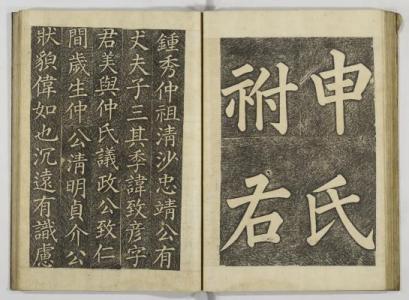 申氏
祔右
鍾秀仲祖淸沙忠靖公有
丈夫子三其季諱致彦字
君美與仲氏議政公致仁
間歲生仲公淸明貞介公
狀貌偉如也沉遠有識慮